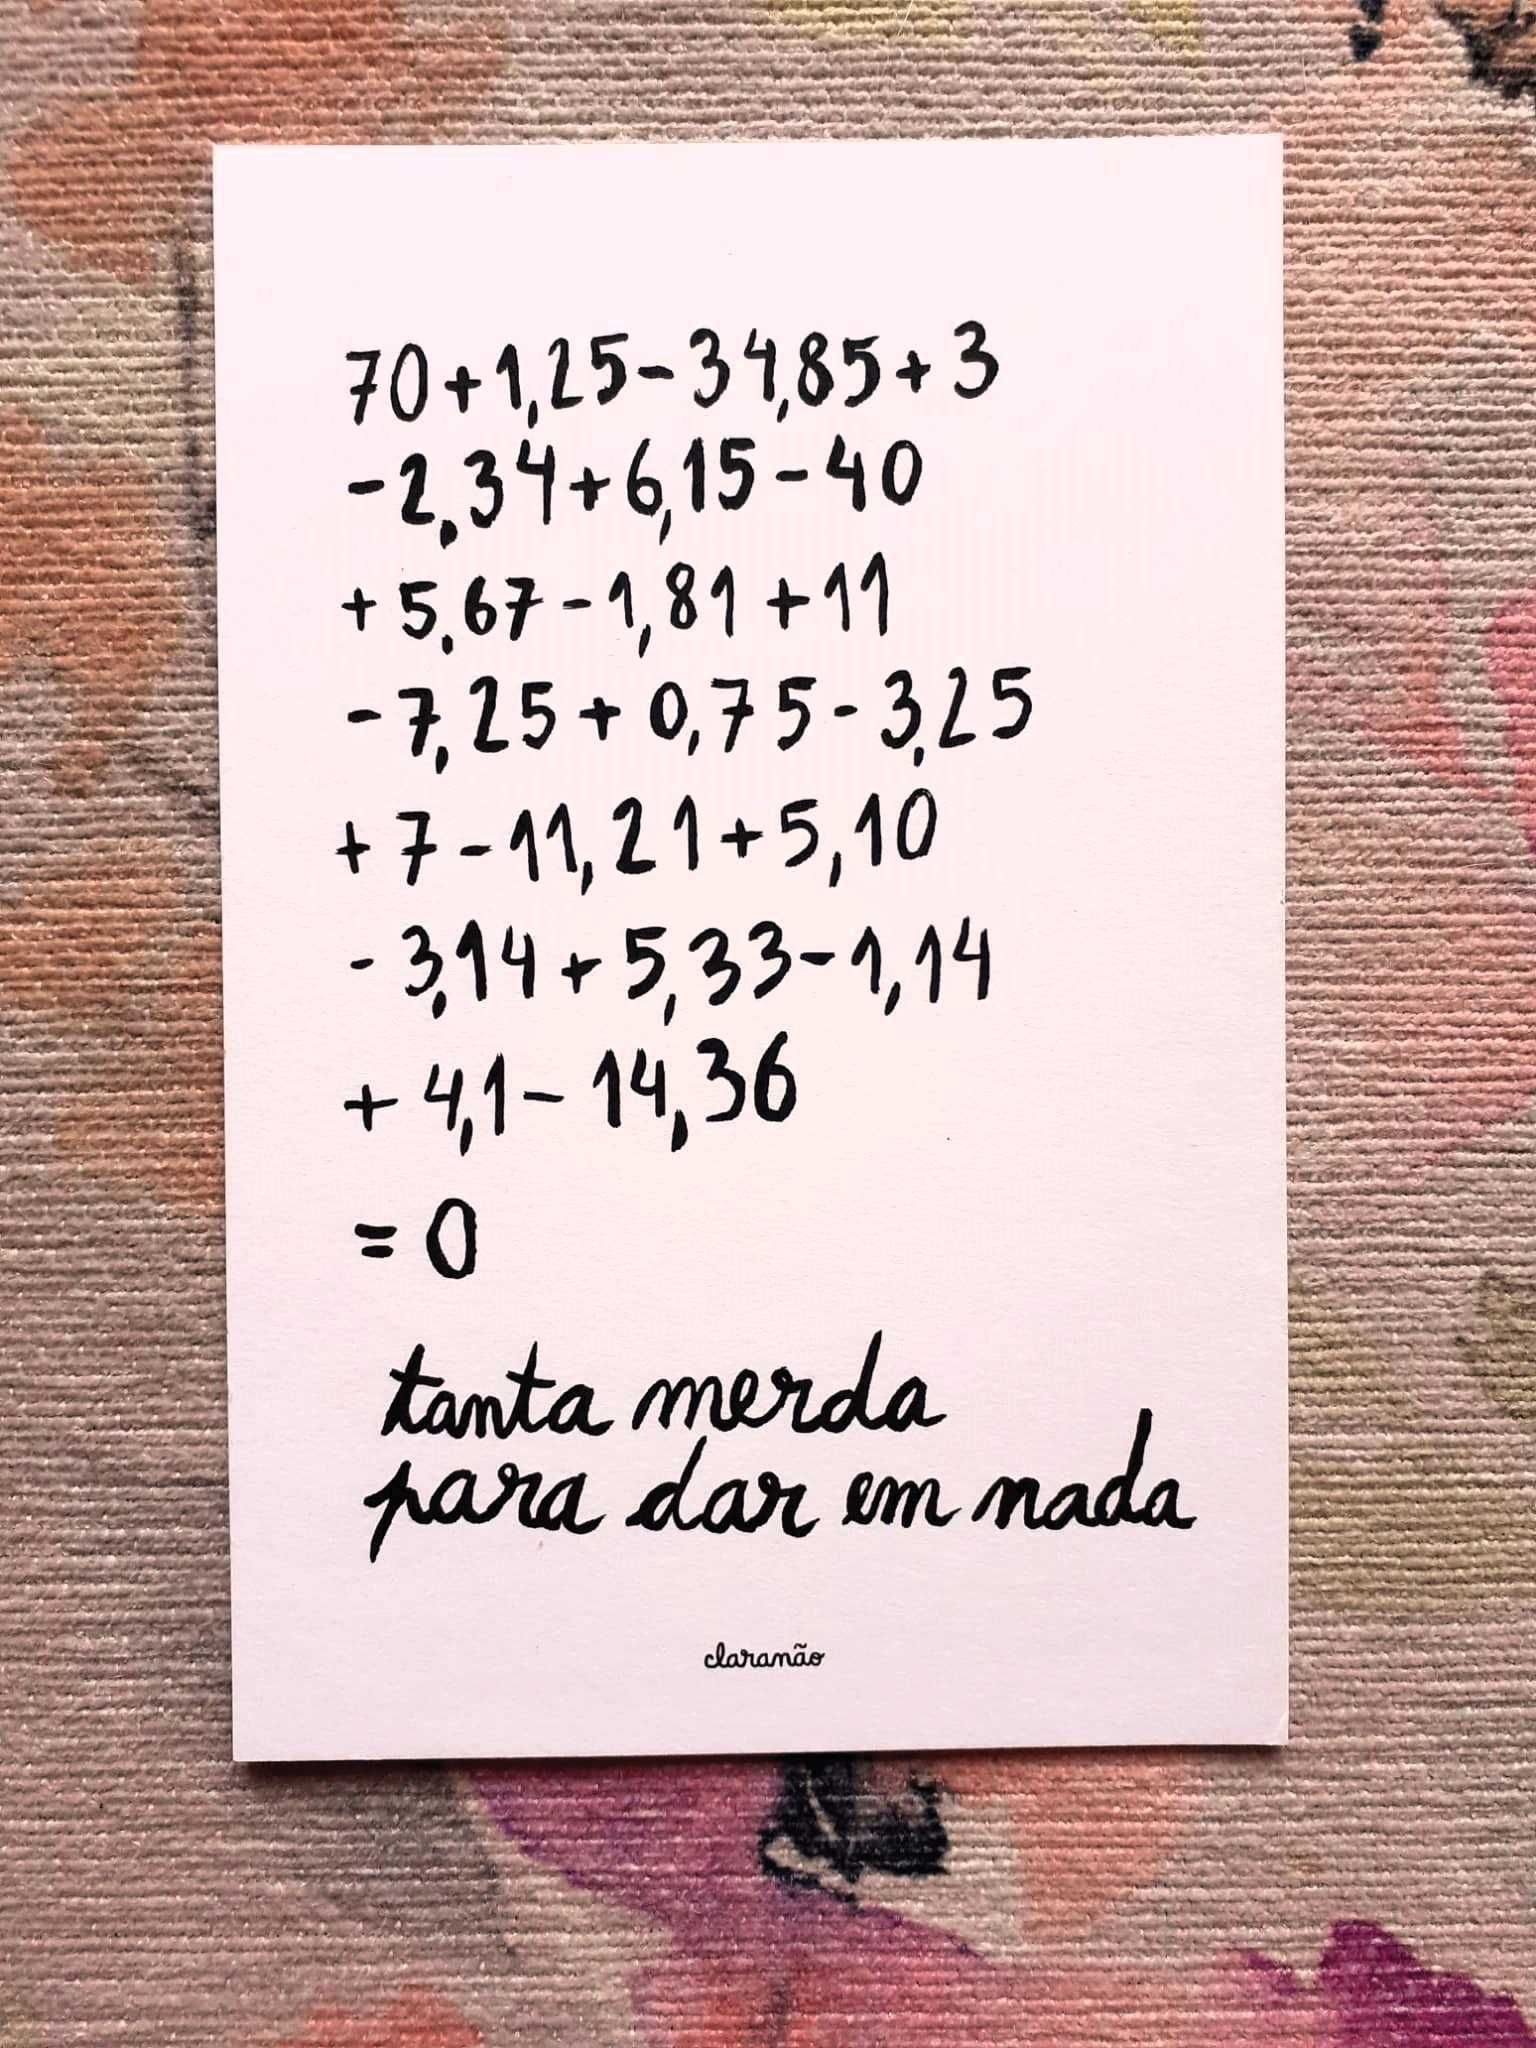 70+1,25-34,85+3
-2,34+6,15-40
+5,67-1,81+11
-7,25+0,75-3,25
+7-11,21+5,10
-3,14+5,33-1,14
+4,1-14,36
=0
tanta merda
para dar em nada
claranão